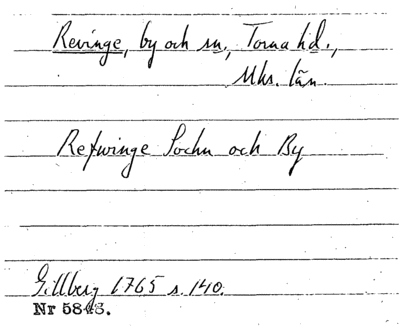 Revinge, by och sn., Torna hd.,
Mhs. län.
Refwinge Sochn och By
Gillberg 1765 s. 140.
Nr 5843.